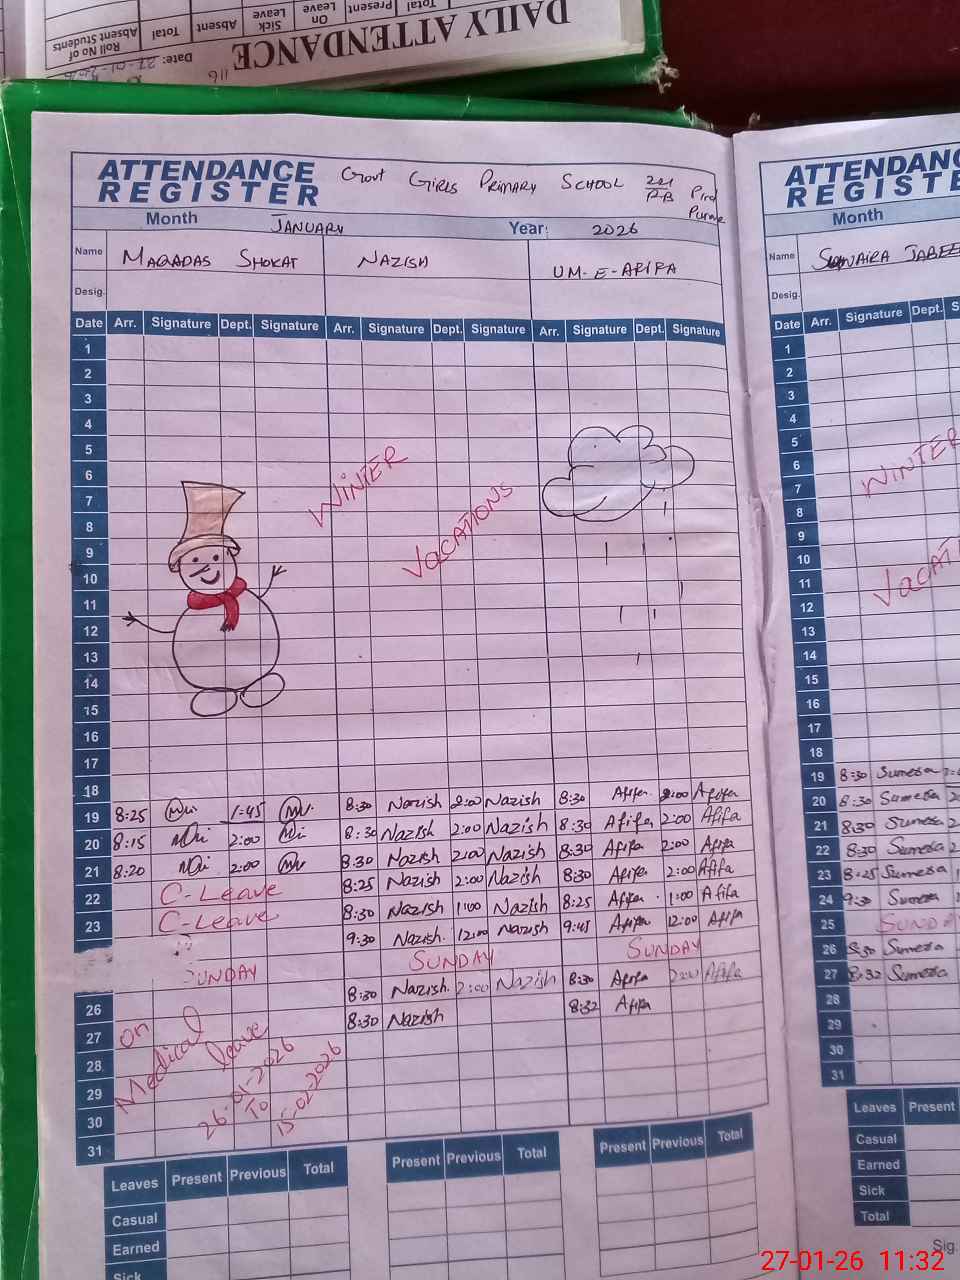 DAILY ATTENDANCE
116
Date: 27-01-2026
Roll No of Absent Students
Total
Absent
Sick Leave
On Leave
Present
Total
ATTENDANCE REGISTER
Govt Girls Primary School 221/P.B Pird Purane
Month JANUARY Year: 2026
Name MAQADAS SHOKAT NAZISH UM-E-AFIFA
Desig.
Date Arr. Signature Dept. Signature Arr. Signature Dept. Signature Arr. Signature Dept. Signature
1
2
3
4
5
6
7
8
9
10
11
12
13
14
15
16
17
18
WINTER VACATIONS
19 8:25 1:45 8:30 Nazish 2:00 Nazish 8:30 Afifa 2:00 Afifa
20 8:15 2:00 8:30 Nazish 2:00 Nazish 8:30 Afifa 2:00 Afifa
21 8:20 2:00 8:30 Nazish 2:00 Nazish 8:30 Afifa 2:00 Afifa
22 C-Leave 8:25 Nazish 2:00 Nazish 8:30 Afifa 2:00 Afifa
23 C-Leave 8:30 Nazish 1:00 Nazish 8:25 Afifa 1:00 Afifa
9:30 Nazish 12:00 Nazish 9:45 Afifa 12:00 Afifa
SUNDAY SUNDAY SUNDAY
26 8:30 Nazish 2:00 Nazish 8:30 Afifa 2:00 Afifa
27 8:30 Nazish 8:32 Afifa
28
29
30
31
on Medical leave
26-01-2026
To
15-02-2026
Leaves Present Previous Total Present Previous Total Present Previous Total
Casual
Earned
Sick
ATTENDANC
REGISTE
Month
Name SUMAIRA JABEE
Desig.
Date Arr. Signature Dept. S
1
2
3
4
5
6
7
8
9
10
11
12
13
14
15
16
17
18
WINTER
VACAT
19 8:30 Sumera
20 8:30 Sumera
21 8:30 Sumera
22 8:30 Sumera
23 8:25 Sumera
24 9:30 Sumera
25 SUNDA
26 8:30 Sumera
27 8:32 Sumera
28
29
30
31
Leaves Present
Casual
Earned
Sick
Total
Sig.
27-01-26 11:32